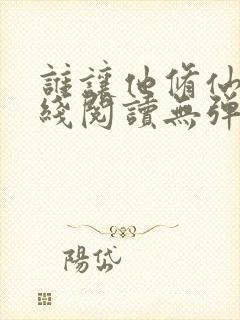 誰讓他脩仙
綫閱讀無彈
陽岱